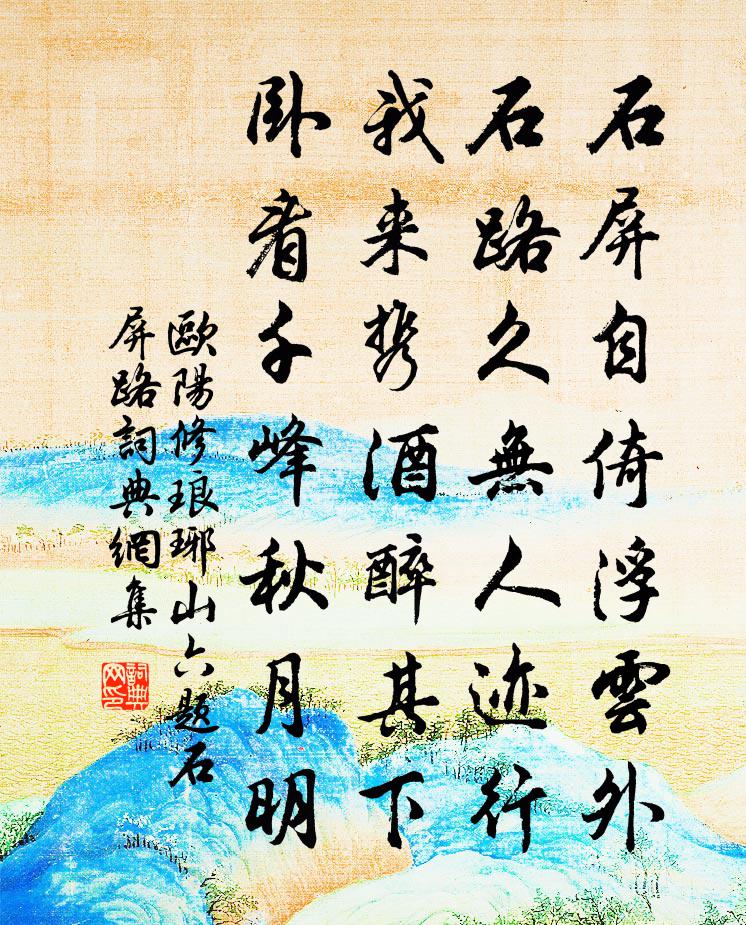 石屏自倚浮雲外
石路久無人迹行
我来携酒醉其下
卧看千峰秋月明
歐陽修琅琊山六题石
屏路詞典網集
詞典
网印